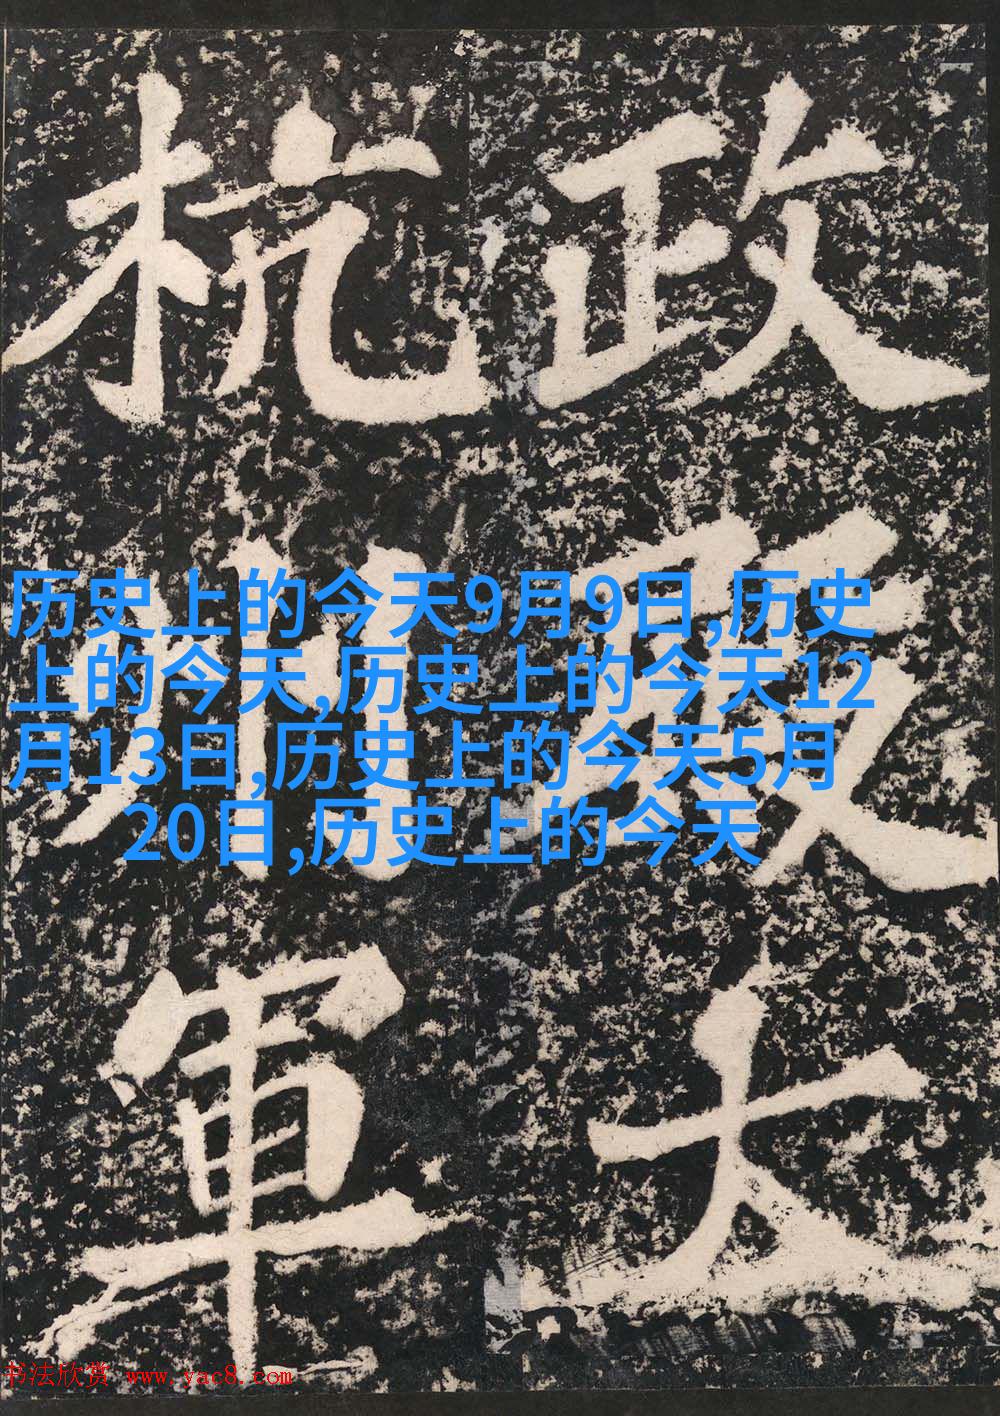 政殿大
杭州軍
历史上的今天9月9日,历史
上的今天,历史上的今天12
月13日,历史上的今天5月
20日,历史上的今天
书法欣赏 www.yac8.com